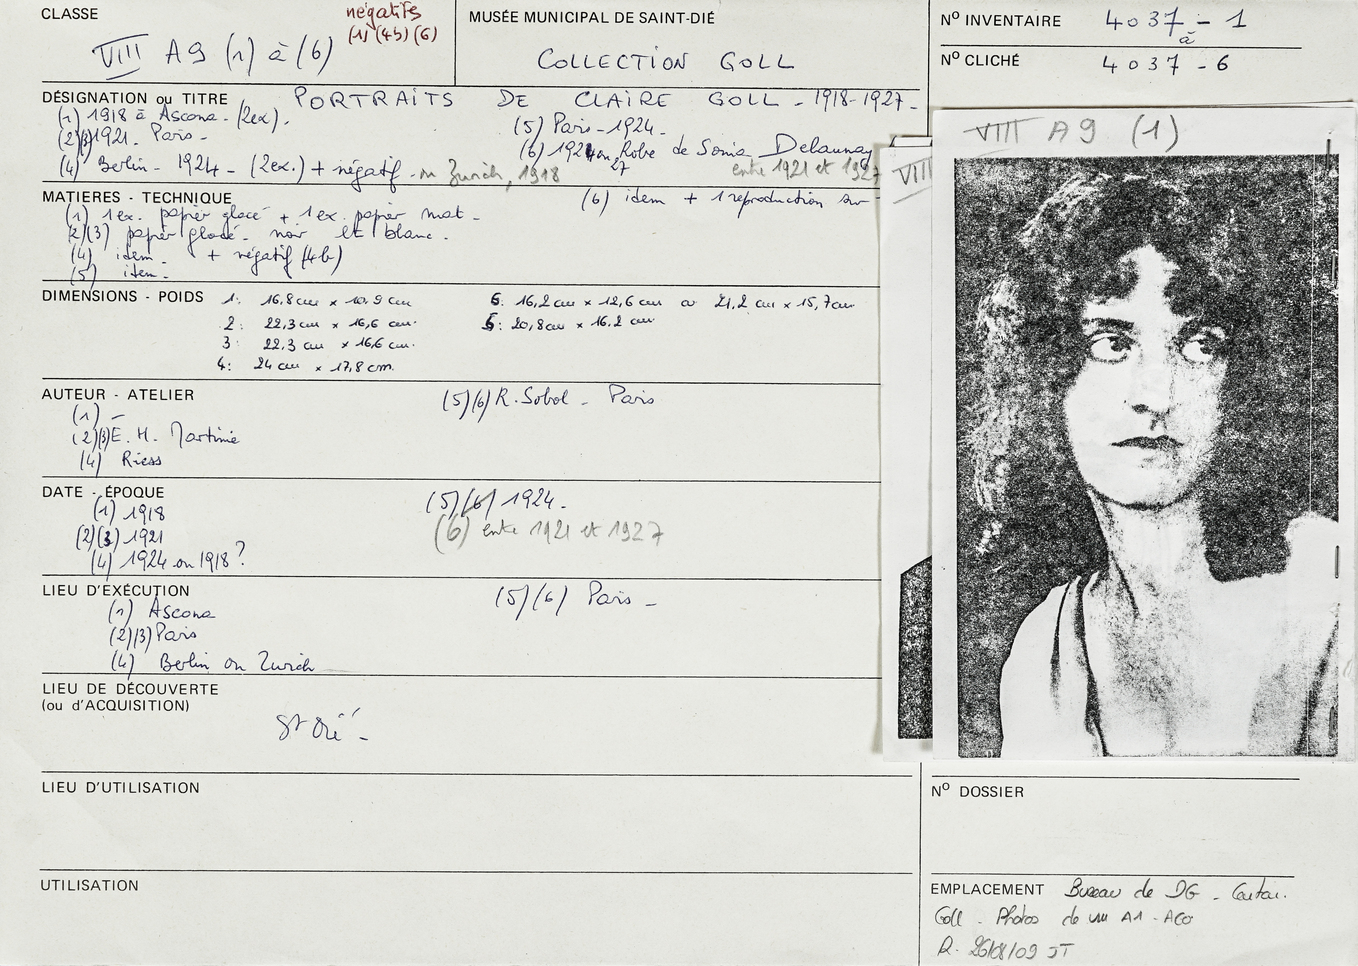 CLASSE
négatifs
(1) (4b) (6)
VIII A9 (1) à (6)
MUSÉE MUNICIPAL DE SAINT-DIÉ
COLLECTION GOLL
Nº INVENTAIRE 4037 - 1
à
Nº CLICHÉ 4037 - 6
DÉSIGNATION ou TITRE PORTRAITS DE CLAIRE GOLL - 1918-1927 -
(1) 1918 à Ascona - (2ex).
(2)(3) 1921. Paris -
(4) Berlin - 1924 - (2ex.) + négatif - ou Zurich, 1918
(5) Paris - 1924 -
(6) 1924 ou 27 Robe de Sonia Delaunay
entre 1921 et 1927
MATIERES - TECHNIQUE
(1) 1 ex. papier glacé + 1 ex. papier mat -
(2)(3) papier glacé - noir et blanc -
(4) idem - + négatif (4b)
(5) idem -
(6) idem + 1 reproduction sur
DIMENSIONS - POIDS
1: 16,8 cm x 10,9 cm
2: 22,3 cm x 16,6 cm.
3: 22,3 cm x 16,6 cm.
4: 24 cm x 17,8 cm.
6: 16,2 cm x 12,6 cm 21,2 cm x 15,7 cm
5: 20,8 cm x 16,2 cm
AUTEUR - ATELIER
(1) -
(2)(3) E. H. Martinie
(4) Riess
(5)(6) R. Sobol - Paris
DATE - ÉPOQUE
(1) 1918
(2)(3) 1921
(4) 1924 ou 1918 ?
(5)(6) 1924 -
(6) entre 1921 et 1927
LIEU D'EXÉCUTION
(1) Ascona
(2)(3) Paris
(4) Berlin ou Zurich
(5)(6) Paris -
LIEU DE DÉCOUVERTE
(ou d'ACQUISITION)
St Dié -
LIEU D'UTILISATION
UTILISATION
VIII
VIII A9 (1)
Nº DOSSIER
EMPLACEMENT Bureau de DG -
Goll - Photos de A1 -
R. 26/08/09 JT